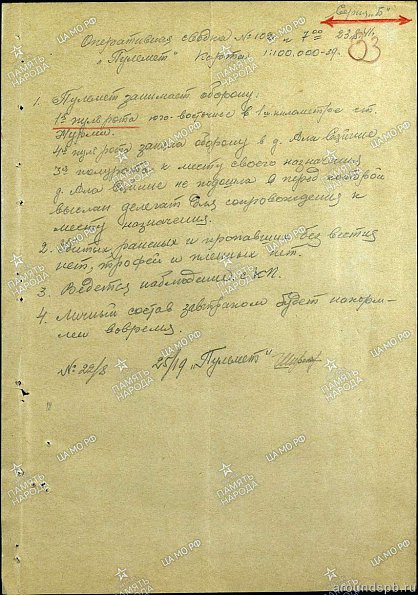 Серия „Б"
Оперативная сводка № 102 к 7⁰⁰ 23.8.41г.
„Пулемет" Карта 1:100.000-39.
53
1. Пулемет занимает оборону.
1я пульрота юго-восточнее в 1 километре ст.
Нурма.
4я пульрота заняла оборону в д. Ала
3я польрота к месту своего назначения
д. Ала не подошла в перед которой
выслан делегат для сопровождения к
месту назначения.
2. Убитых раненых и пропавших без вести
нет, трофей и пленных нет.
3. Ведется наблюдение с КП.
4. Личный состав завтраком будет накорм-
лен вовремя.
№ 22/8 25/19 „Пулемет"
ПАМЯТЬ НАРОДА
ЦА МО РФ
aroundspb.ru